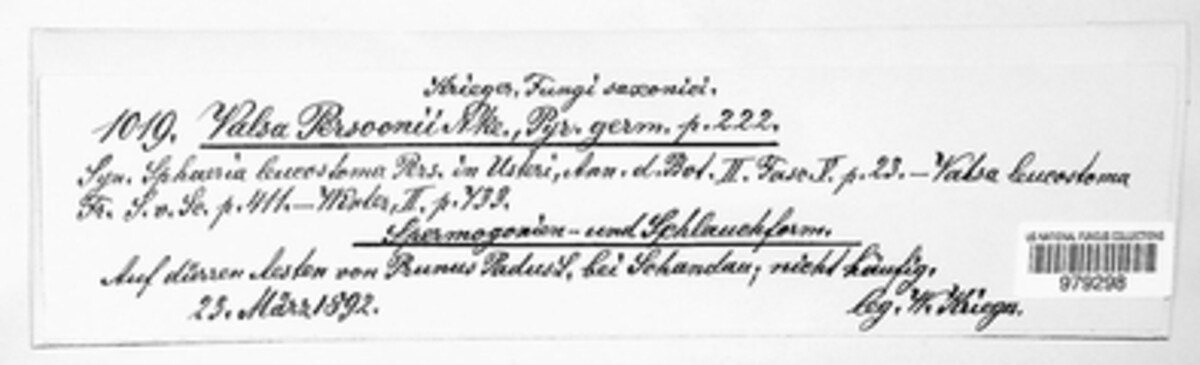 Krieger, Fungi saxonici.
1019. Valsa Persoonii Nke., Pyr. germ. p. 222.
Syn. Sphaeria leucostoma Pers. in Usteri, Ann. d. Bot. II. Fasc. V. p. 23. – Valsa leucostoma
Fr. S. v. Sc. p. 411. – Winter, II, p. 733.
Spermogonien- und Schlauchform.
Auf dürren Aesten von Prunus Padus L. bei Schandau; nicht häufig.
23. März 1892.
leg. W. Krieger.
US NATIONAL FUNGUS COLLECTIONS
979298